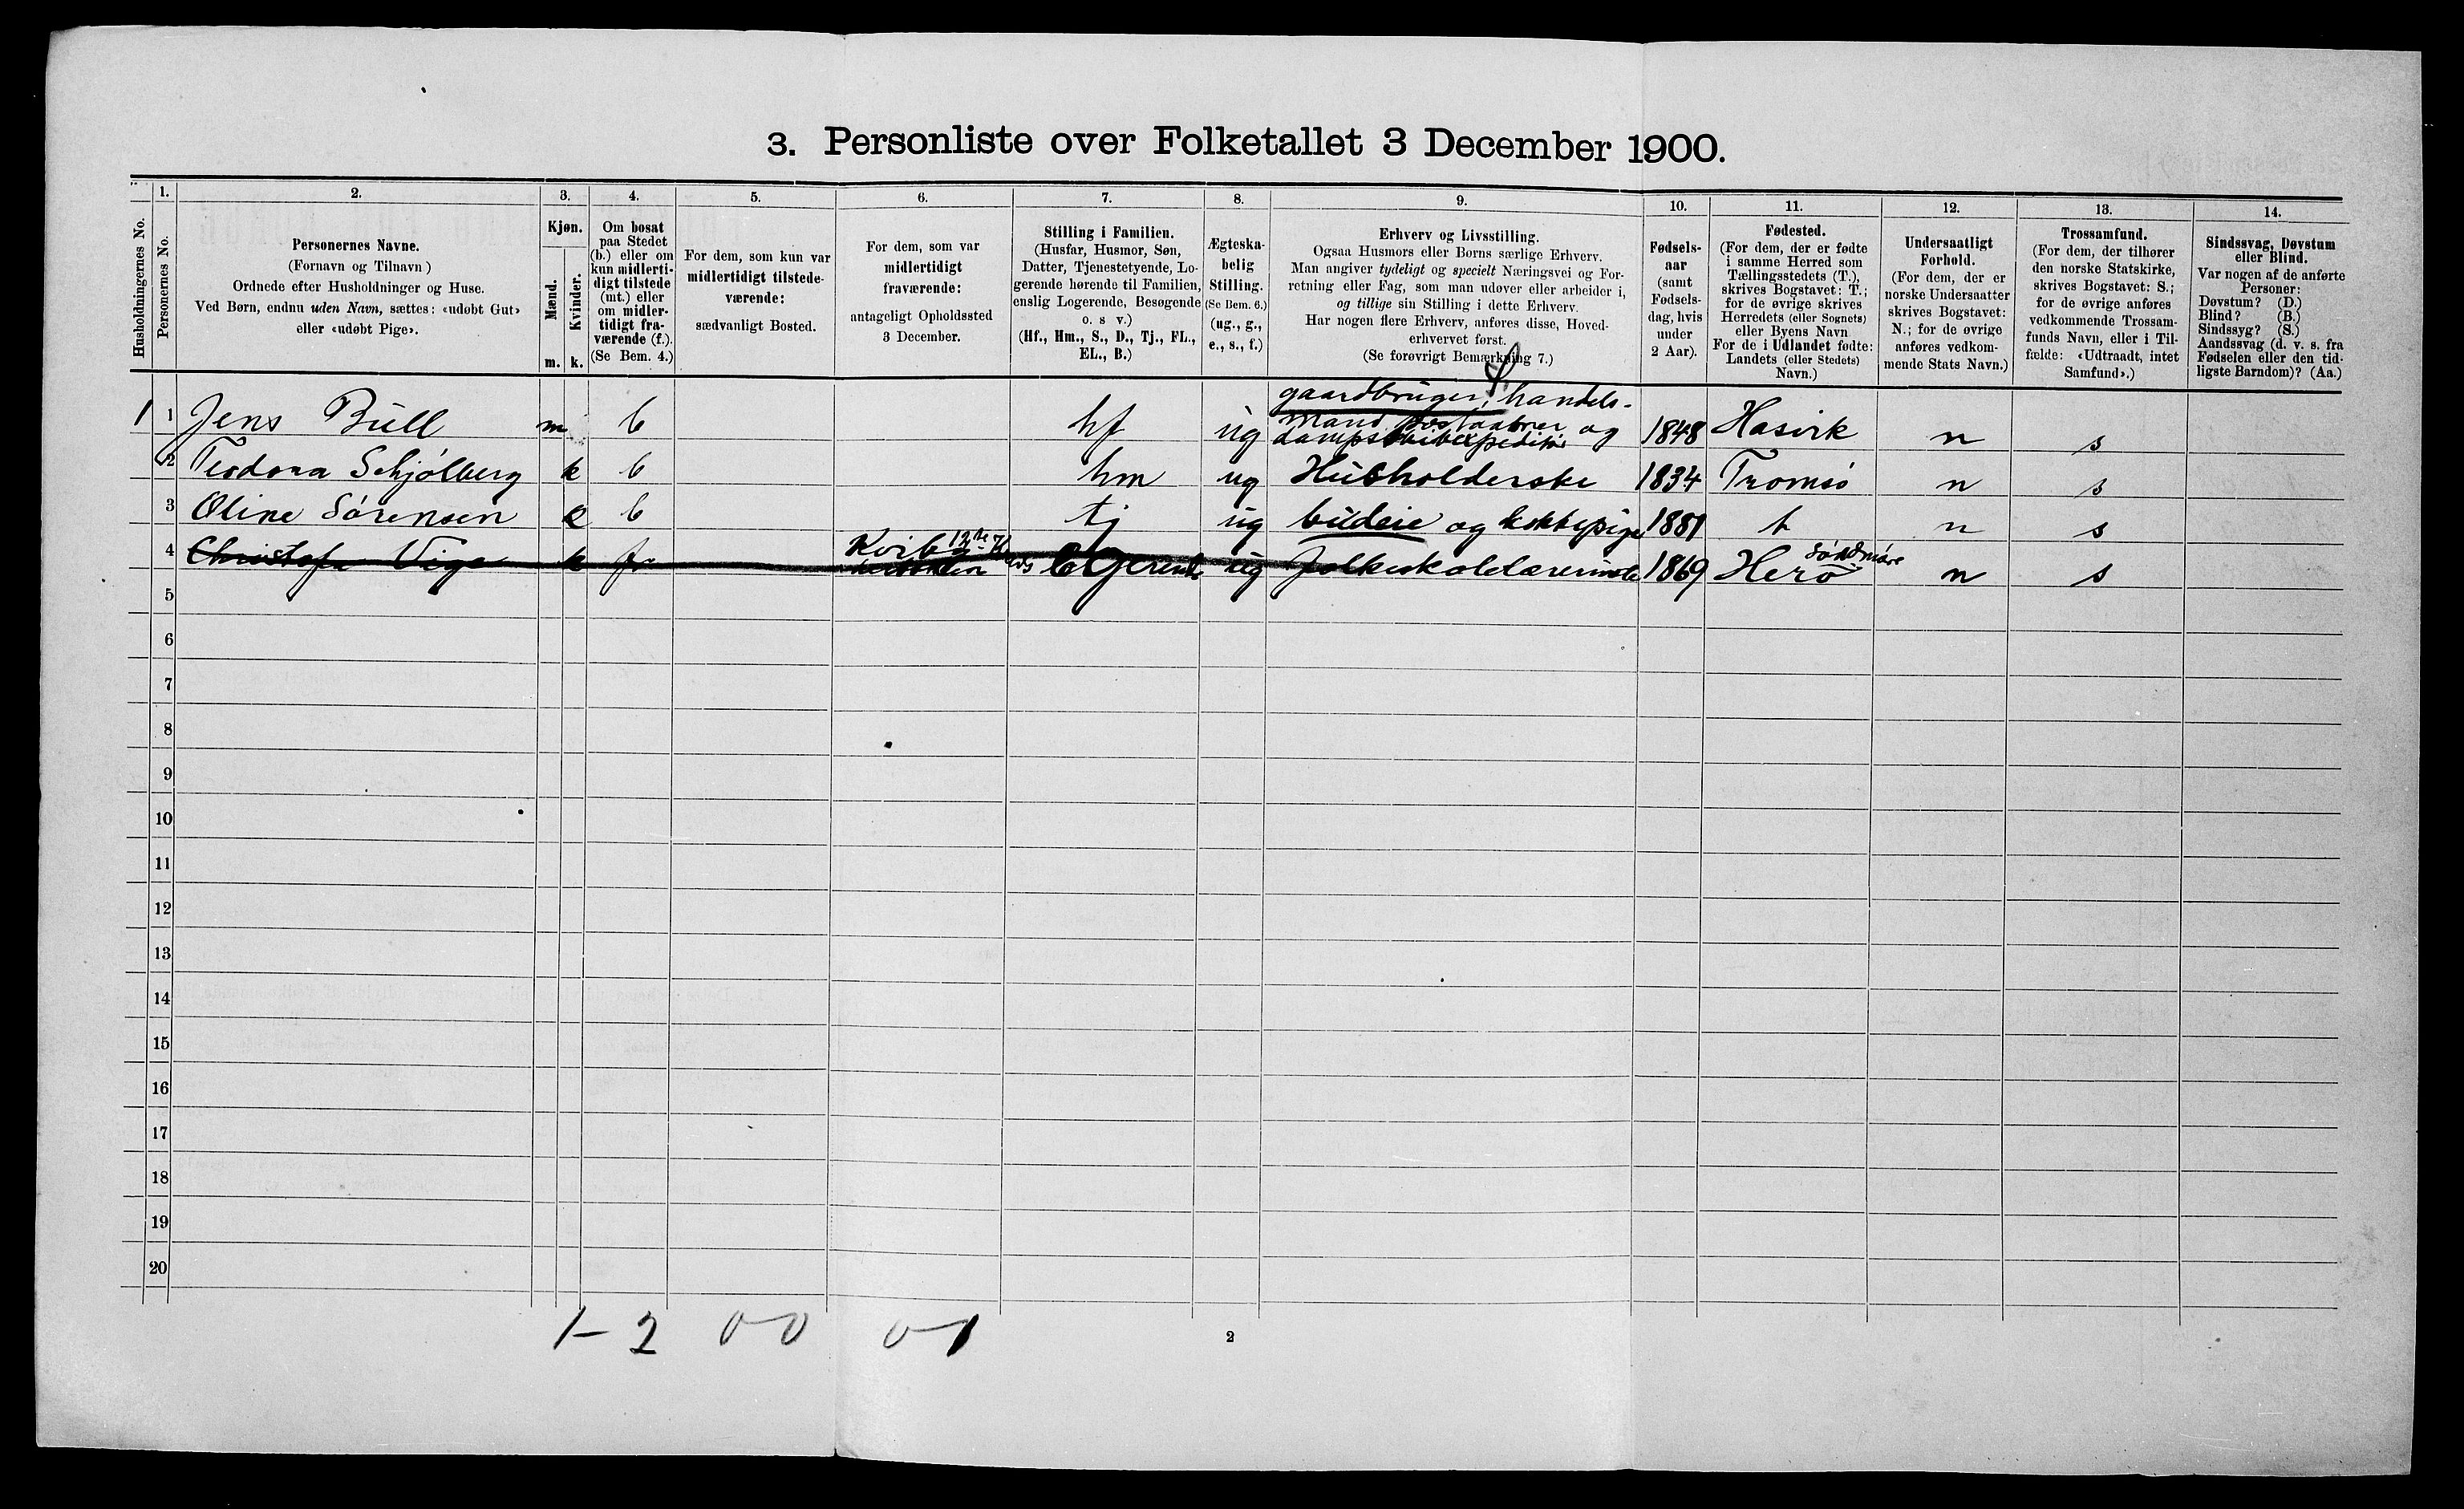 3. Personliste over Folketallet 3 December 1900.
Husholdningernes No.
1.
Personernes No.
2.
Personernes Navne.
(Fornavn og Tilnavn)
Ordnede efter Husholdninger og Huse.
Ved Børn, endnu uden Navn, sættes: «udøbt Gut»
eller «udøbt Pige».
3.
Kjøn.
Mænd.
Kvinder.
m. k.
4.
Om bosat
paa Stedet
(b.) eller om
kun midlerti-
digt tilstede
(mt.) eller
om midler-
tidigt fra-
værende (f.).
(Se Bem. 4.)
5.
For dem, som kun var
midlertidigt tilstede-
værende:
sædvanligt Bosted.
6.
For dem, som var
midlertidigt
fraværende:
antageligt Opholdssted
3 December.
7.
Stilling i Familien.
(Husfar, Husmor, Søn,
Datter, Tjenestetyende, Lo-
gerende hørende til Familien,
enslig Logerende, Besøgende
o. s v.)
(Hf., Hm., S., D., Tj., FL.,
EL., B.)
8.
Ægteska-
belig
Stilling.
(Se Bem. 6.)
(ug., g.,
e., s., f.)
9.
Erhverv og Livsstilling.
Ogsaa Husmors eller Børns særlige Erhverv.
Man angiver tydeligt og specielt Næringsvei og For-
retning eller Fag, som man udøver eller arbeider i,
og tillige sin Stilling i dette Erhverv.
Har nogen flere Erhverv, anføres disse, Hoved-
erhvervet først.
(Se forøvrigt Bemærkning 7.)
10.
Fødsels-
aar
(samt
Fødsels-
dag, hvis
under
2 Aar).
11.
Fødested.
(For dem, der er fødte
i samme Herred som
Tællingsstedets (T.),
skrives Bogstavet: T.;
for de øvrige skrives
Herredets (eller Sognets)
eller Byens Navn
For de i Udlandet fødte:
Landets (eller Stedets)
Navn.)
12.
Undersaatligt
Forhold.
(For dem, der er
norske Undersaatter
skrives Bogstavet:
N.; for de øvrige
anføres vedkom-
mende Stats Navn.)
13.
Trossamfund.
(For dem, der tilhører
den norske Statskirke,
skrives Bogstavet: S.;
for de øvrige anføres
vedkommende Trossam-
funds Navn, eller i Til-
fælde: «Udtraadt, intet
Samfund».)
14.
Sindssvag, Døvstum
eller Blind.
Var nogen af de anførte
Personer:
Døvstum? (D.)
Blind? (B.)
Sindssyg? (S.)
Aandssvag (d. v. s. fra
Fødselen eller den tid-
ligste Barndom)? (Aa.)
gaardbruger, handels-
mand postaabner og
dampskibexpeditør
1 1 Jens Bull m b hf ug 1848 Hasvik n s
2 Teodora Schjølberg k b hm ug Husholderske 1834 Tromsø n s
3 Oline Sørensen k b tj ug budeie og kokkepige 1881 t n s
4 Christofa Vige k fr el Logerende ug folkeskolelærerinde 1869 Herø Søndmøre n s
5
6
7
8
9
10
11
12
13
14
15
16
17
18
19
20
1-2 0-0 0-1
2